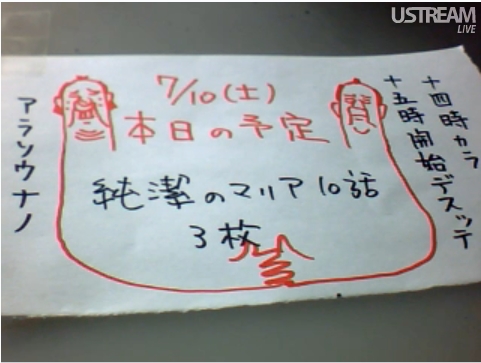 USTREAM
LIVE
7/10(土)
本日の予定
純潔のマリア10話
3枚
十四時カラ
十五時開始デスッテ
アラソウナノ